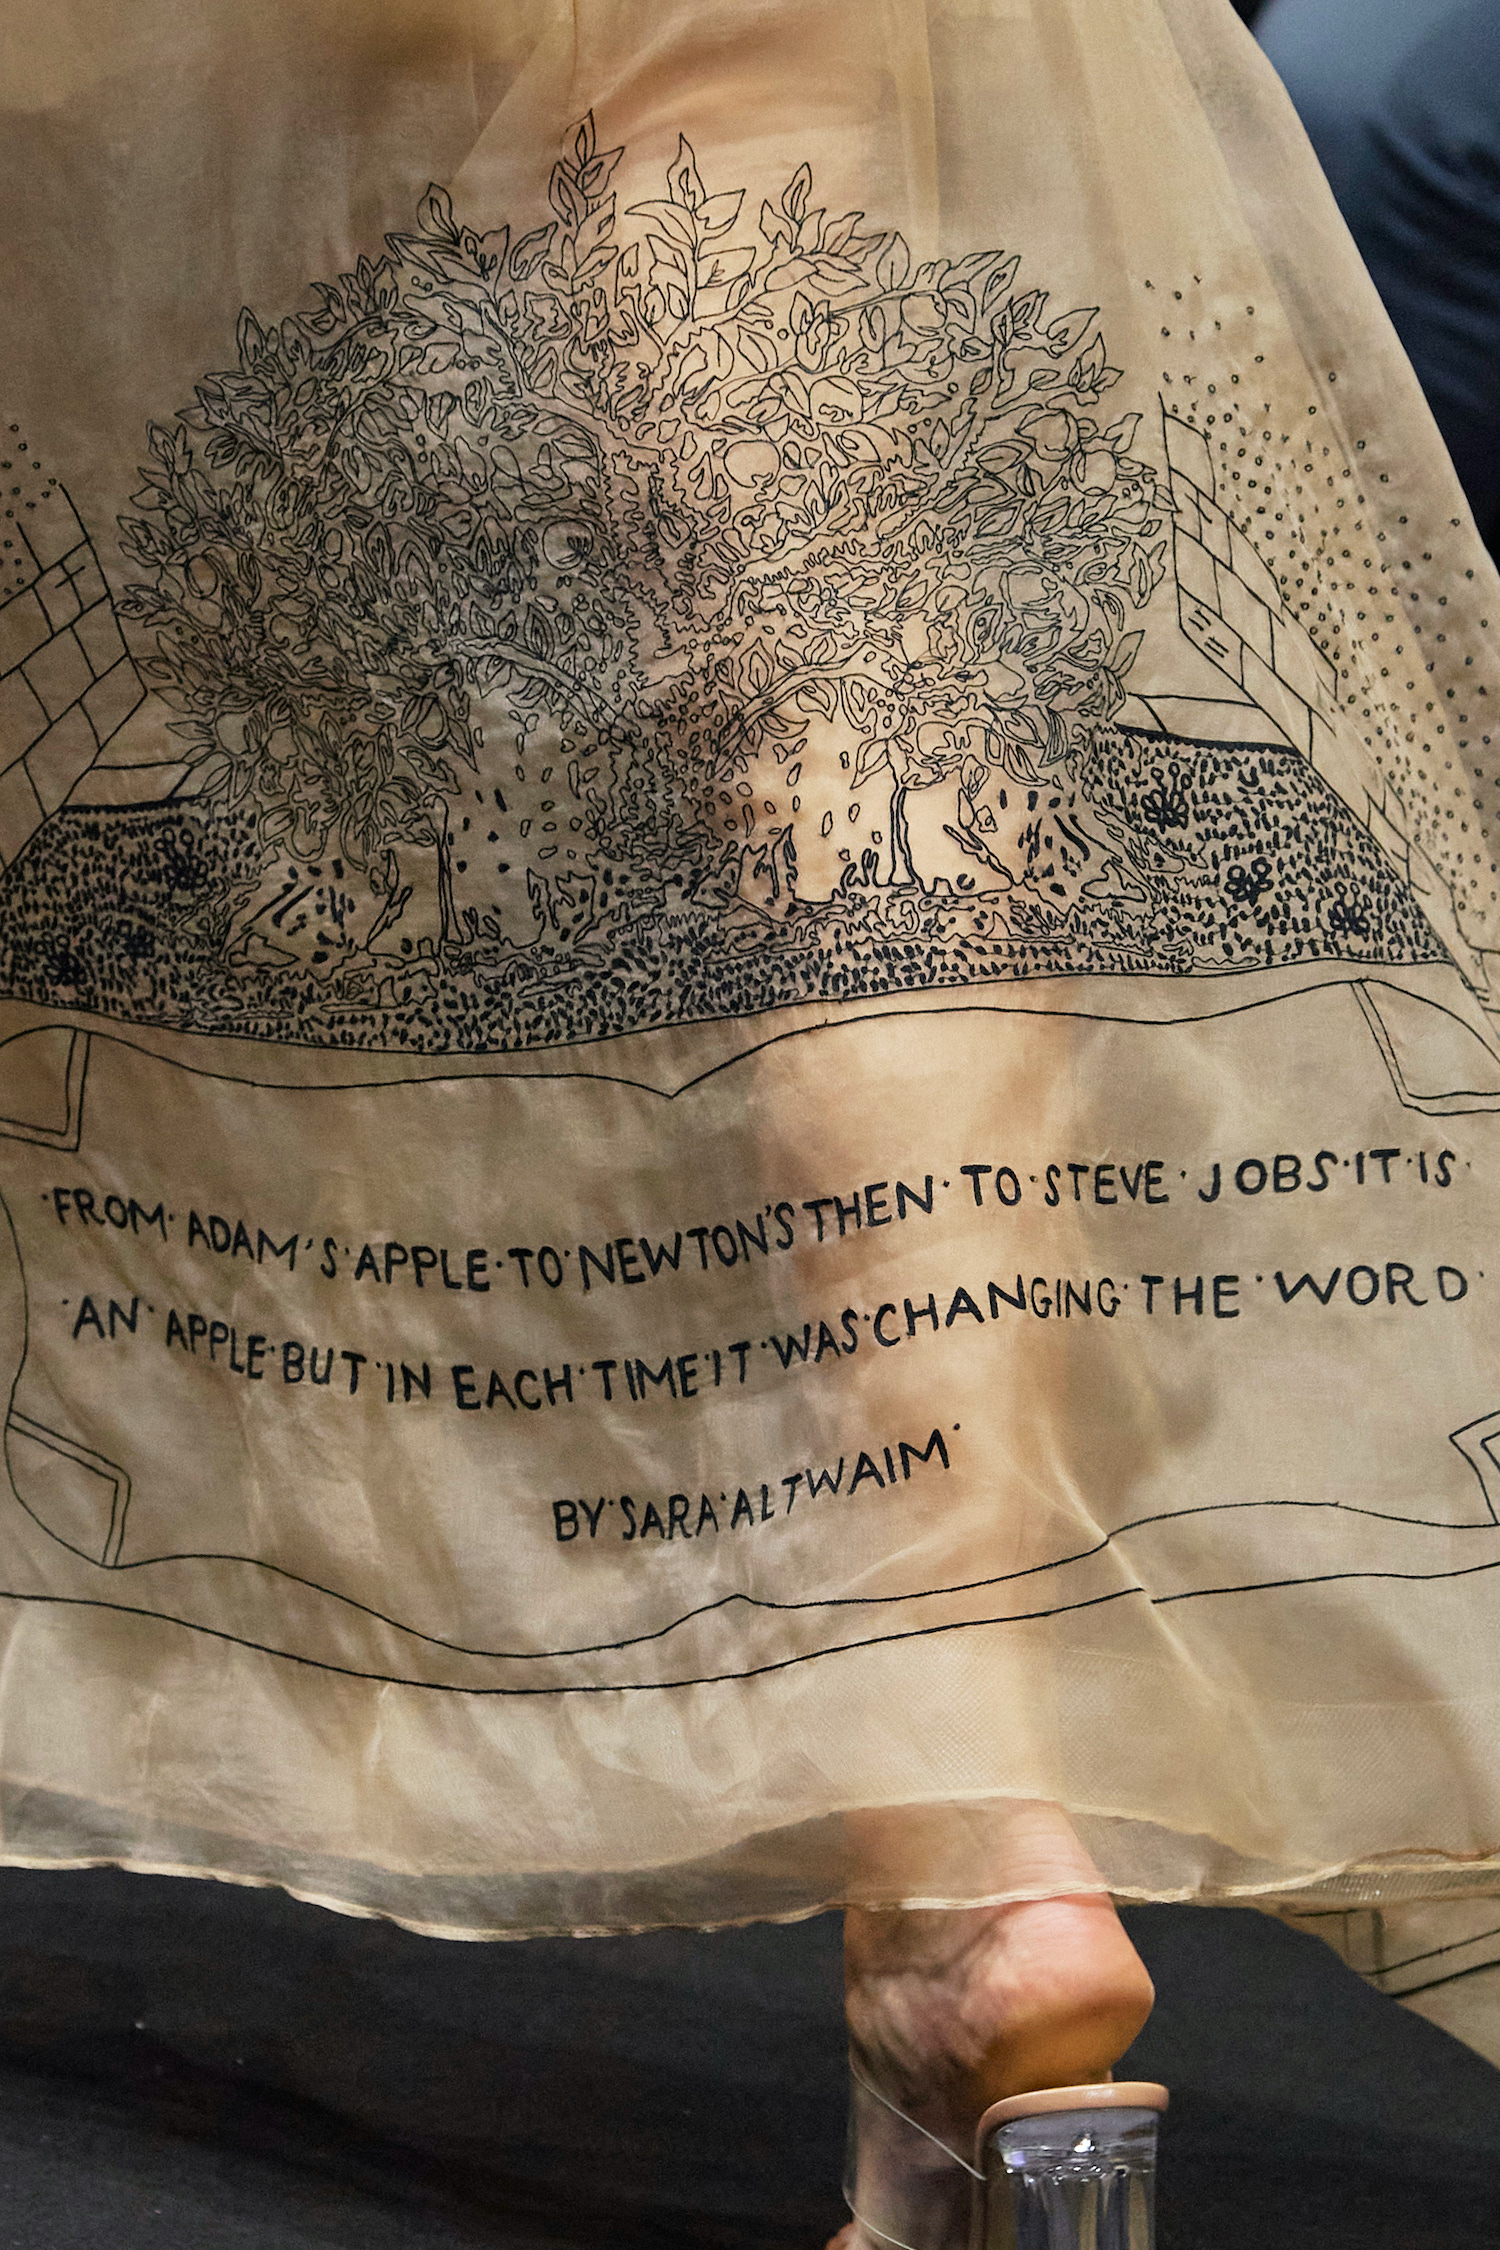 ·FROM·ADAM'S·APPLE·TO·NEWTON'S THEN·TO·STEVE·JOBS·IT·IS·
·AN·APPLE·BUT·IN EACH·TIME·IT·WAS·CHANGING·THE·WORD·
BY·SARA·ALTWAIM·